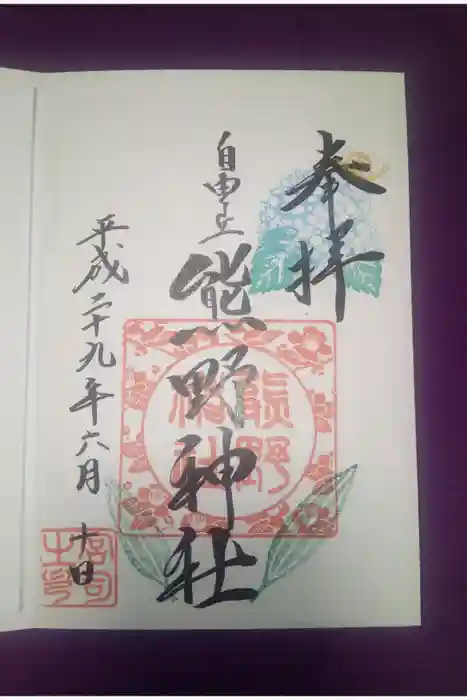 奉拝
自由丘
熊野神社
平成二十九年六月十日
熊野神社
宮司之印